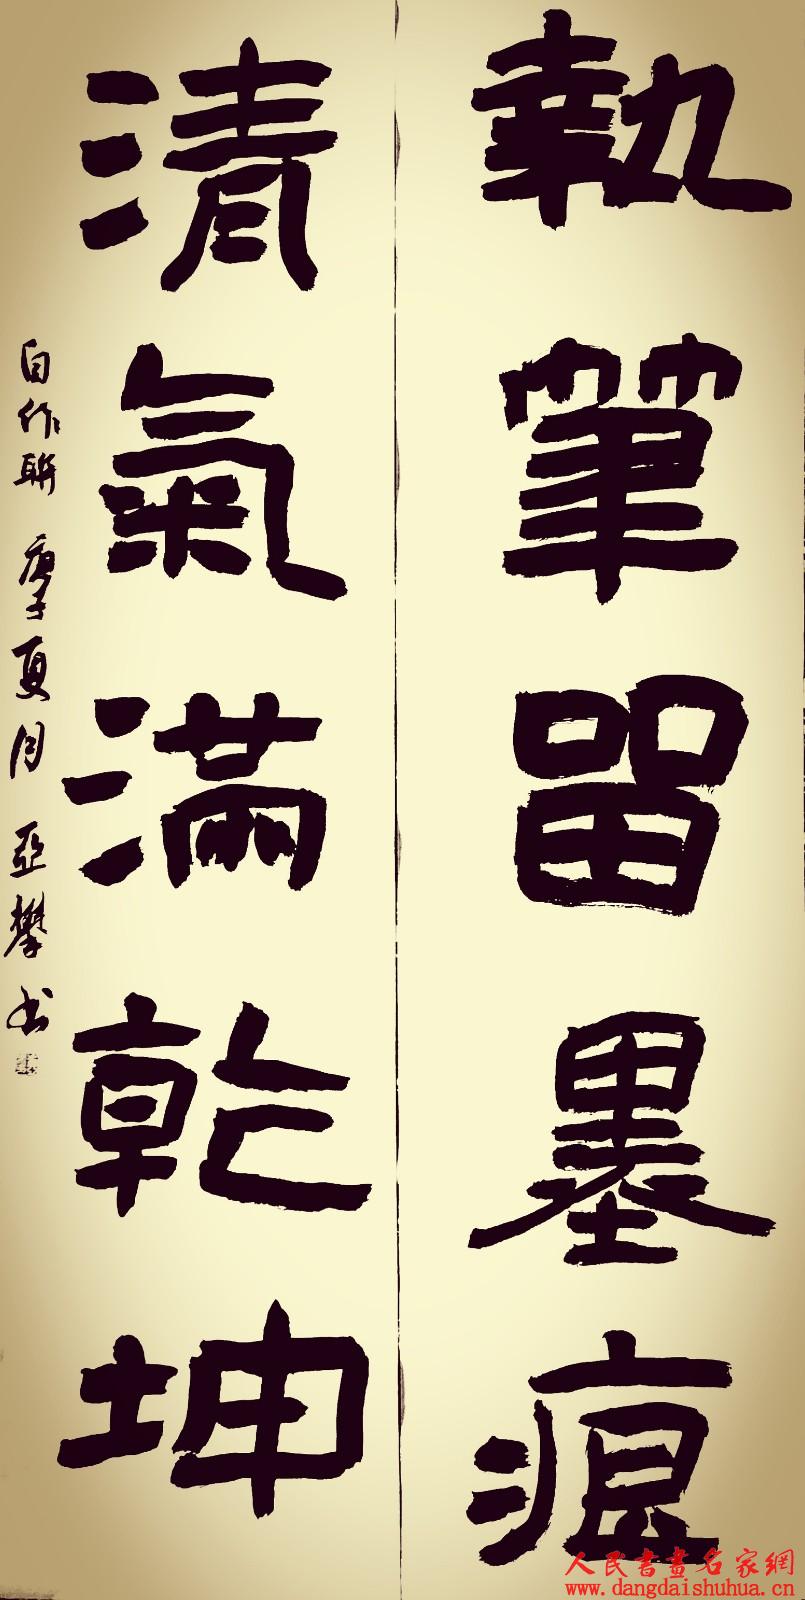 執筆留墨痕
清氣滿乾坤
自作聯 庚子夏月 亞攀书
人民書畫名家網
www.dangdaishuhua.cn